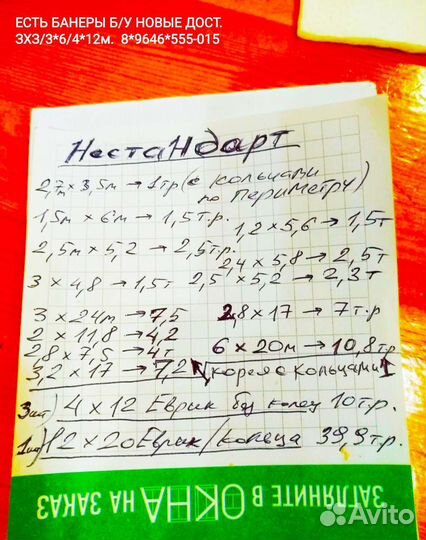 ЕСТЬ БАНЕРЫ Б/У НОВЫЕ ДОСТ.
3Х3/3*6/4*12м. 8*9646*555-015
Нестандарт
2,7м × 3,5м → 1тр (с кольцами
по Периметру)
1,5м × 6м → 1,5т.р.
1,2 × 5,6 → 1,5т
2,5м × 5,2 → 2,5тр.
2,4 × 5,8 → 2,5т
3 × 4,8 → 1,5т
2,5 × 5,2 → 2,3т
3 × 24м → 7,5
2,8 × 17 → 7т.р
2 × 11,8 → 4,2
2,8 × 7,5 → 4т
6 × 20м → 10,8тр
3,2 × 17 → 7,2
(корея с кольцами)
3шт) 4 × 12 Еврик без колец 10тр.
1шт) 12 × 20 Еврик/кольца 39,9тр.
ЗАГЛЯНИТЕ В ОКНА НА ЗАКАЗ
Avito